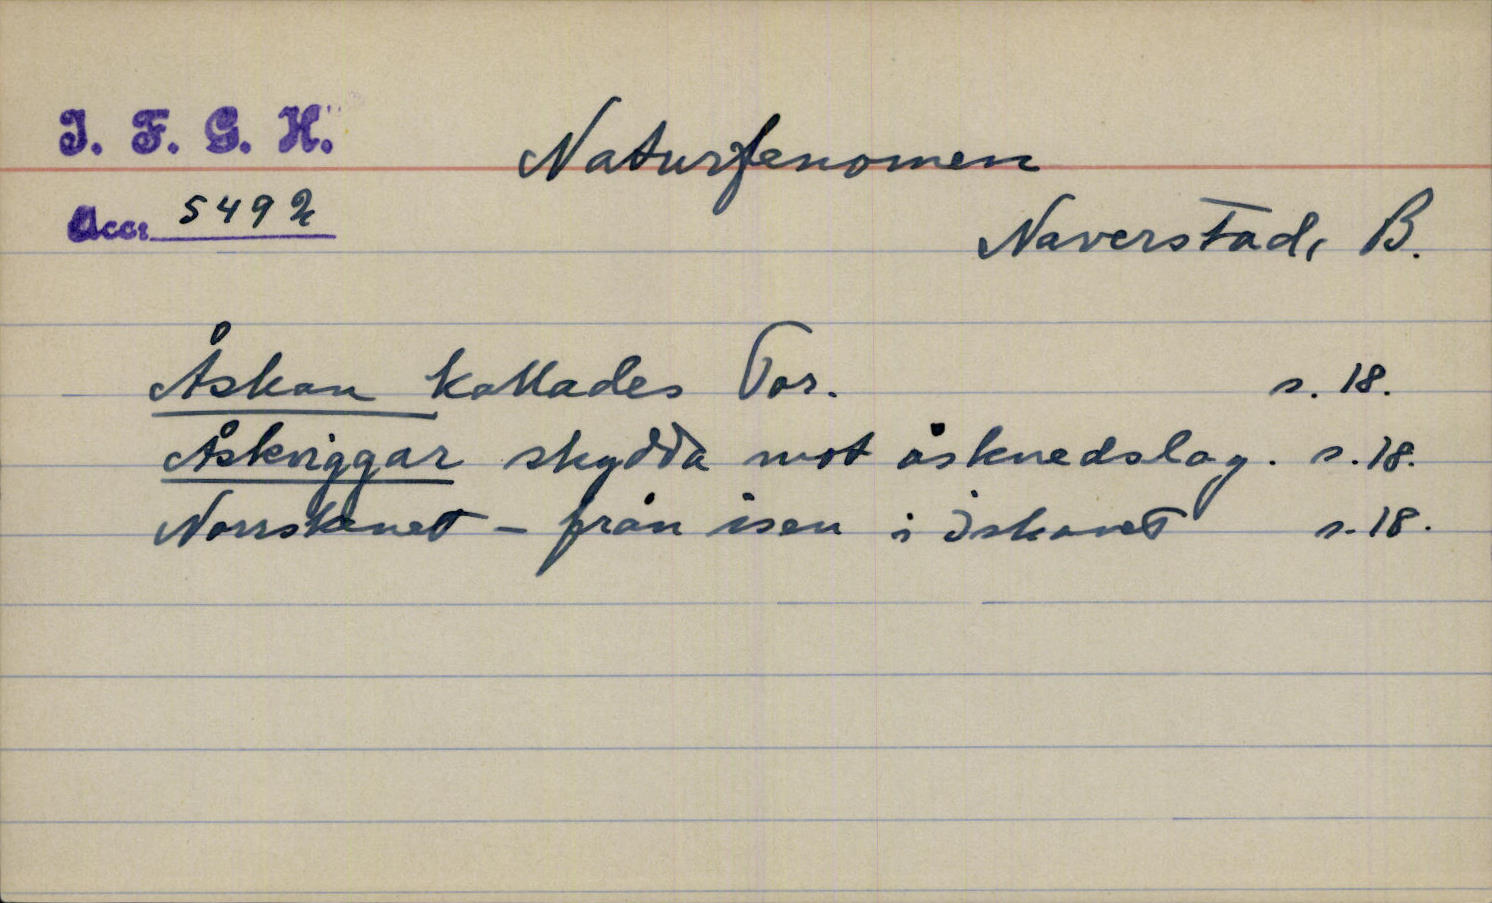 I. F. G. H.
Naturfenomen
Accr 5492
Naverstad, B.
Åskan kallades Tor. s. 18.
Åskviggar skydda mot åsknedslag. s. 18.
Norrskenet – från isen i Ishavet s. 18.